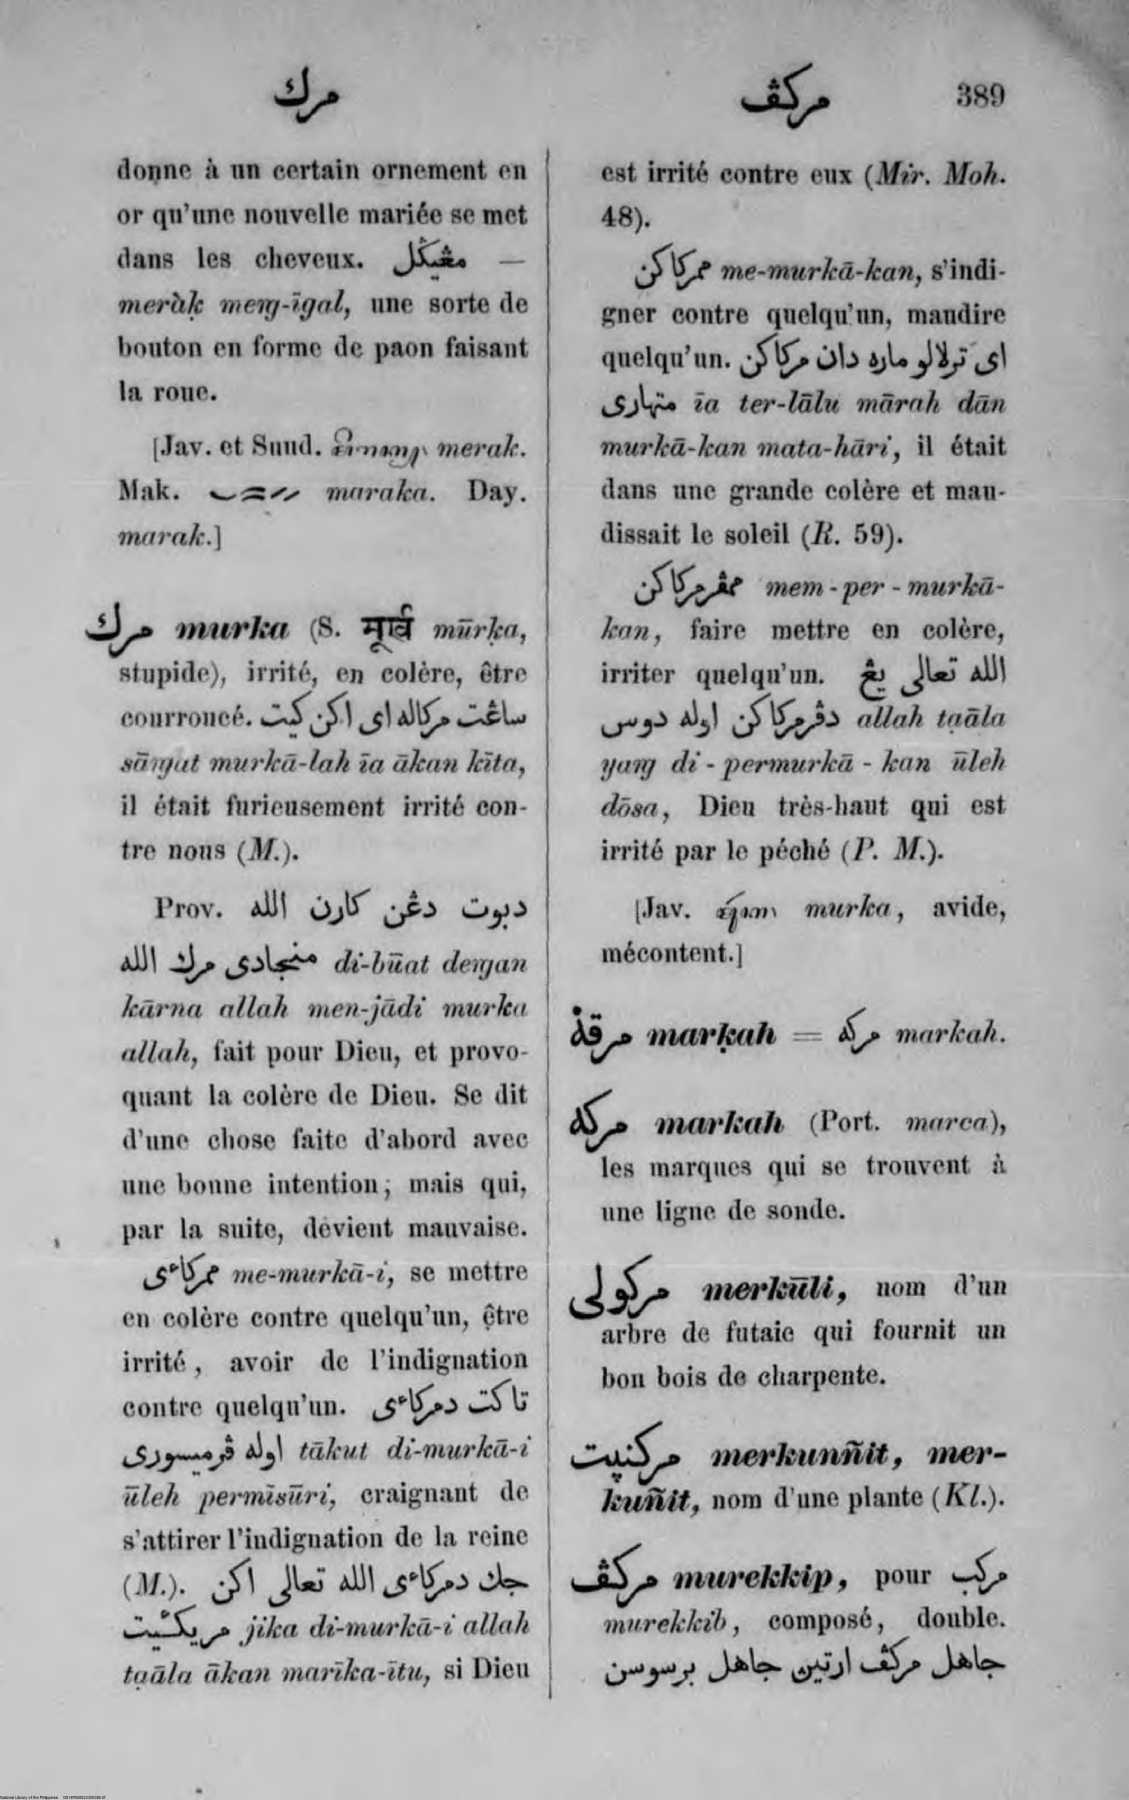 مرك
مركڤ 389
donne à un certain ornement en
or qu'une nouvelle mariée se met
dans les cheveux. مڠيݢل —
meràḳ meng-īgal, une sorte de
bouton en forme de paon faisant
la roue.
[Jav. et Sund. merak.
Mak. maraka. Day.
marak.]
مرك murka (S. मूर्ख mūrḳa,
stupide), irrité, en colère, être
courroucé. ساڠت مركاله اى اكن كيت
sāngat murkā-lah īa ākan kīta,
il était furieusement irrité con-
tre nous (M.).
Prov. دبوت دڠن كارن الله
منجادى مرك الله di-būat dengan
kārna allah men-jādi murka
allah, fait pour Dieu, et provo-
quant la colère de Dieu. Se dit
d'une chose faite d'abord avec
une bonne intention; mais qui,
par la suite, devient mauvaise.
ممركاءى me-murkā-i, se mettre
en colère contre quelqu'un, être
irrité, avoir de l'indignation
contre quelqu'un. تاكت دمركاءى
اوله ڤرميسورى tākut di-murkā-i
ūleh permīsūri, craignant de
s'attirer l'indignation de la reine
(M.). جك دمركاءى الله تعالى اكن
مريكئيت jika di-murkā-i allah
taāla ākan marīka-ītu, si Dieu
est irrité contre eux (Mir. Moh.
48).
ممركاكن me-murkā-kan, s'indi-
gner contre quelqu'un, maudire
quelqu'un. اى ترلالو ماره دان مركاكن
متهارى īa ter-lālu mārah dān
murkā-kan mata-hāri, il était
dans une grande colère et mau-
dissait le soleil (R. 59).
ممڤرمركاكن mem-per-murkā-
kan, faire mettre en colère,
irriter quelqu'un. الله تعالى يڠ
دڤرمركاكن اوله دوس allah taāla
yang di-permurkā-kan ūleh
dōsa, Dieu très-haut qui est
irrité par le péché (P. M.).
[Jav. murka, avide,
mécontent.]
مرقه marḳah = مركه markah.
مركه markah (Port. marca),
les marques qui se trouvent à
une ligne de sonde.
مركولى merkūli, nom d'un
arbre de futaie qui fournit un
bon bois de charpente.
مركنيت merkunñit, mer-
kuñit, nom d'une plante (Kl.).
مركڤ murekkip, pour مركب
murekkib, composé, double.
جاهل مركڤ ارتين جاهل برسوسن